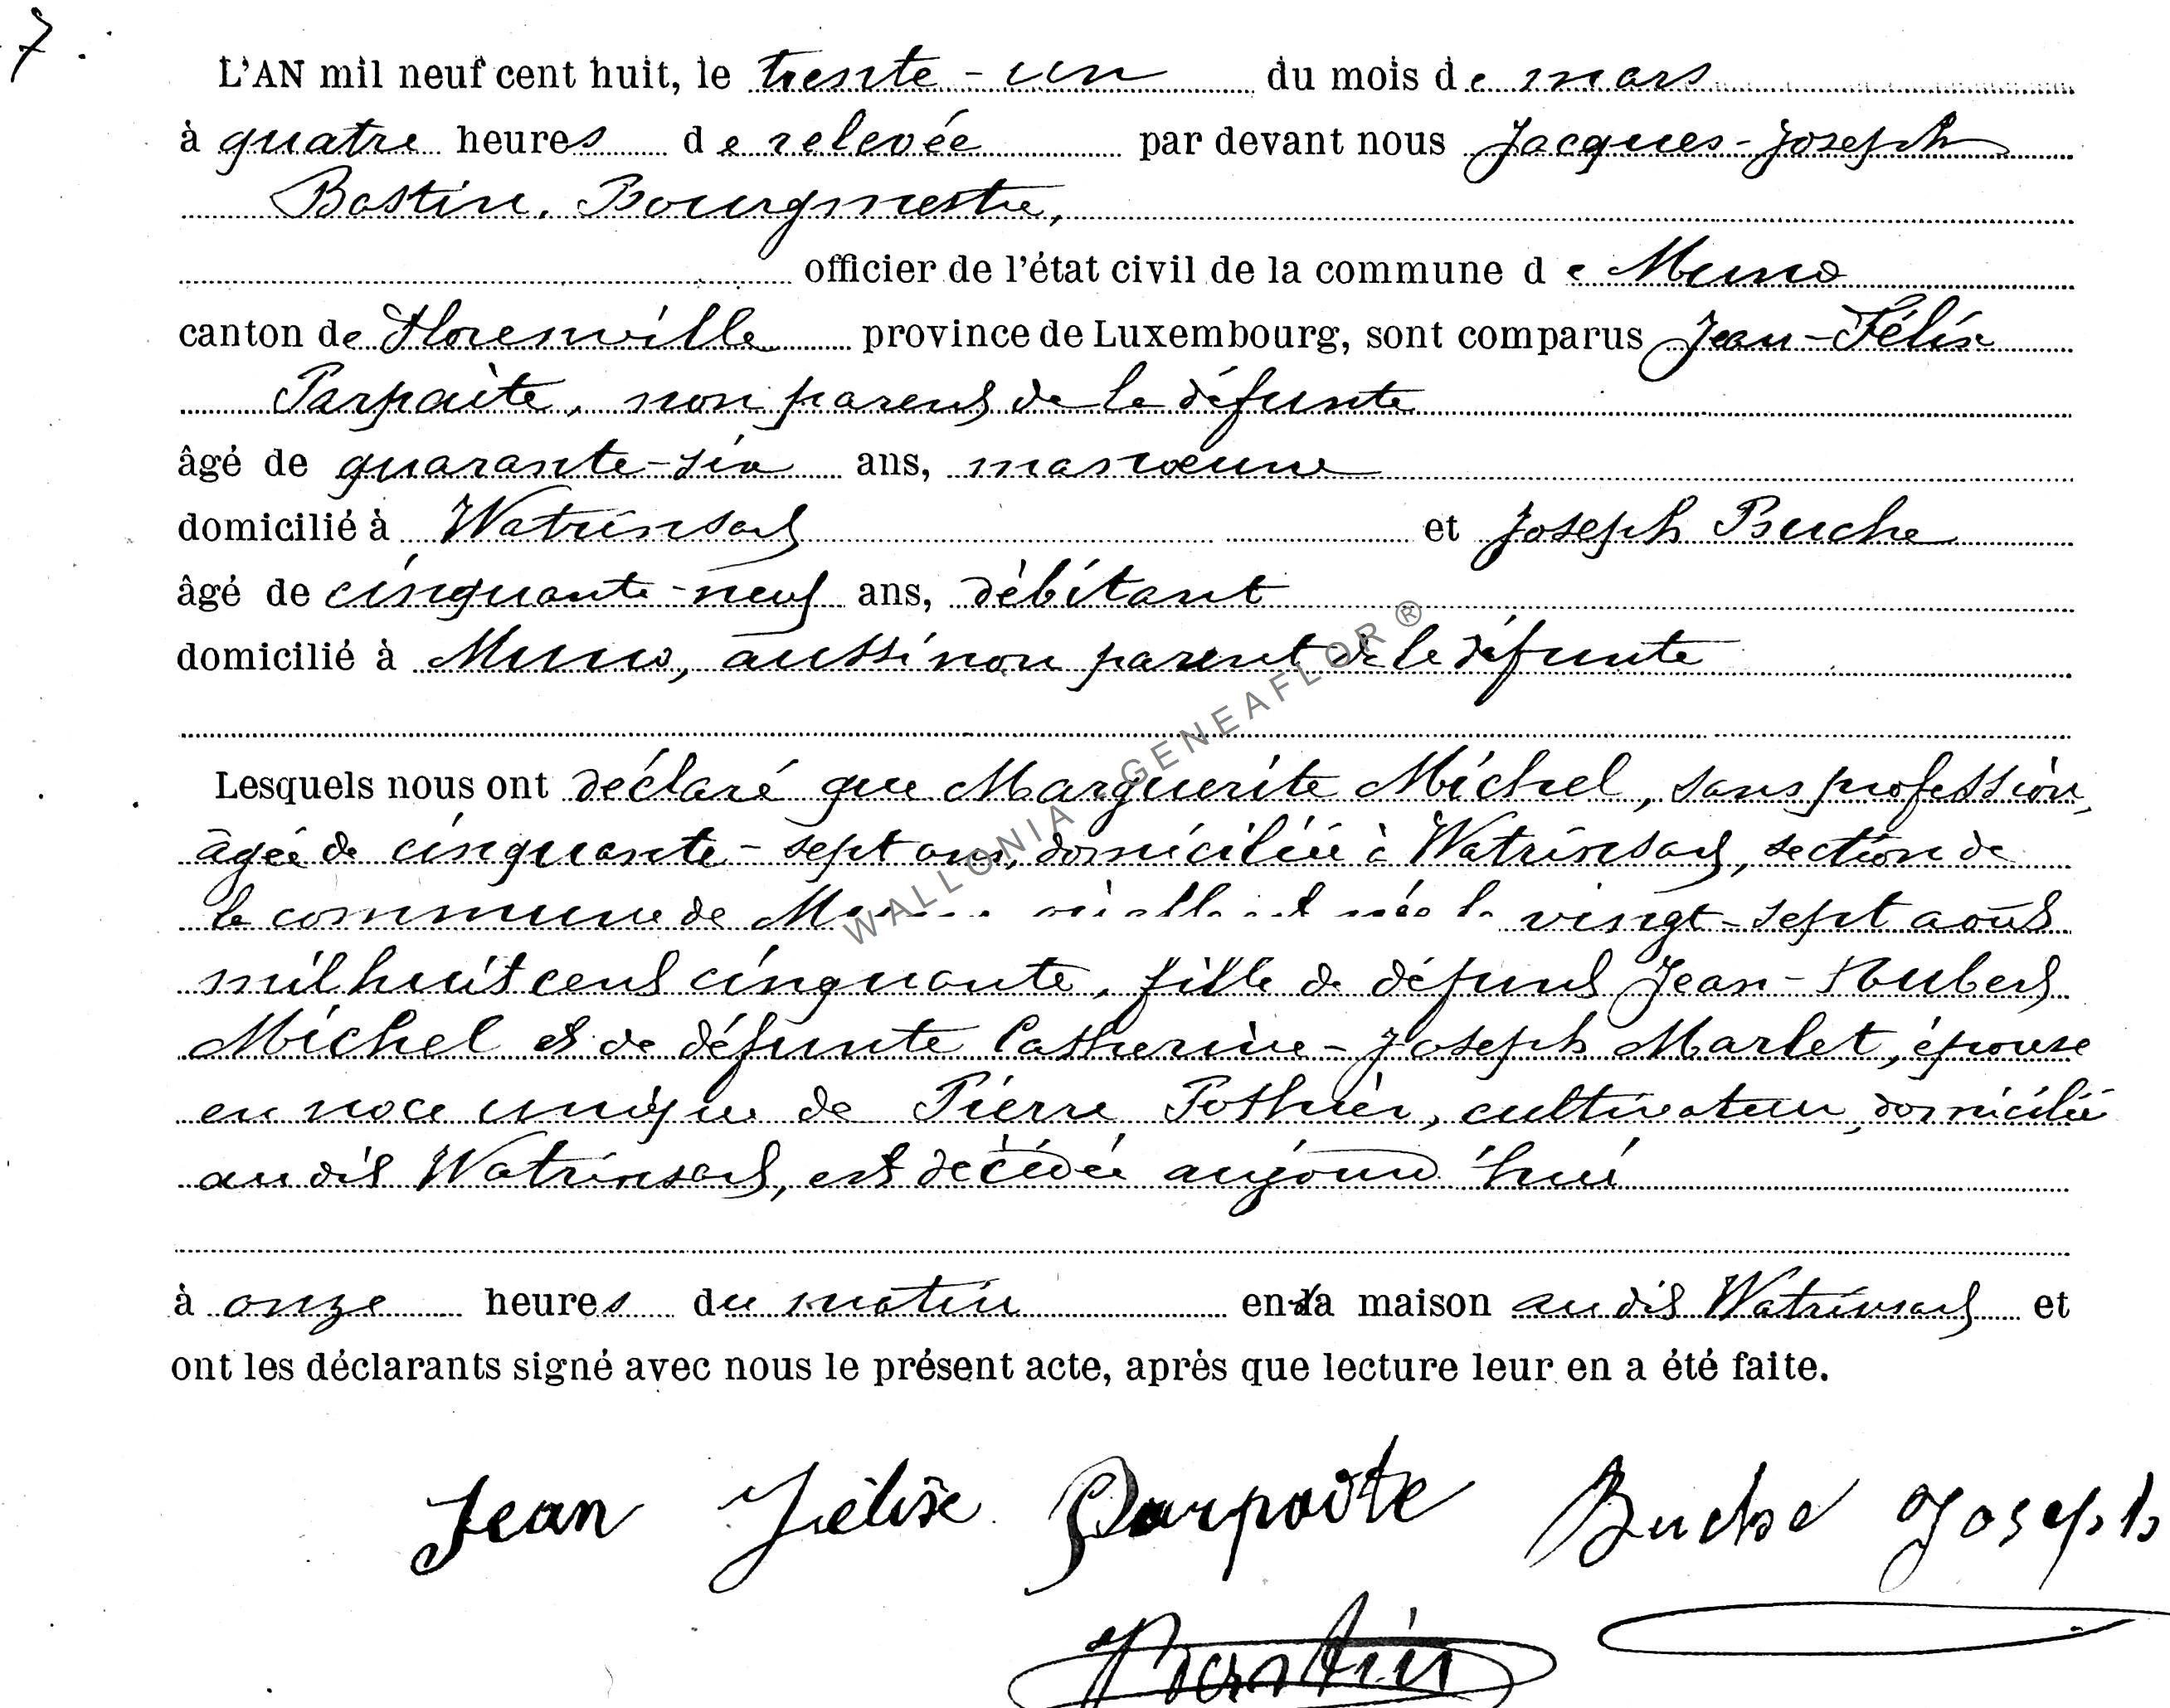 7.
L'AN mil neuf cent huit, le trente-un du mois de mars
à quatre heures de relevée par devant nous Jacques-Joseph
Bastin, Bourgmestre,
officier de l'état civil de la commune de Muno
canton de Florenville province de Luxembourg, sont comparus Jean-Félix
Parpaite, non parent de la défunte
âgé de quarante-six ans, manoeuvre
domicilié à Watrinsart et Joseph Buche
âgé de cinquante-neuf ans, débitant
domicilié à Muno, aussi non parent de la défunte
Lesquels nous ont déclaré que Marguerite Michel, sans profession,
âgée de cinquante-sept ans, domiciliée à Watrinsart, section de
la commune de Muno où elle est née le vingt-sept août
mil huit cent cinquante, fille de défunt Jean-Hubert
Michel et de défunte Catherine-Joseph Marlet, épouse
en noce unique de Pierre Pothier, cultivateur, domicilié
au dit Watrinsart, est décédée aujourd'hui
à onze heures du matin en sa maison au dit Watrinsart et
ont les déclarants signé avec nous le présent acte, après que lecture leur en a été faite.
Jean Félix Parpaite Buche Joseph
Bastin
WALLONIA GENEAFLOR ®